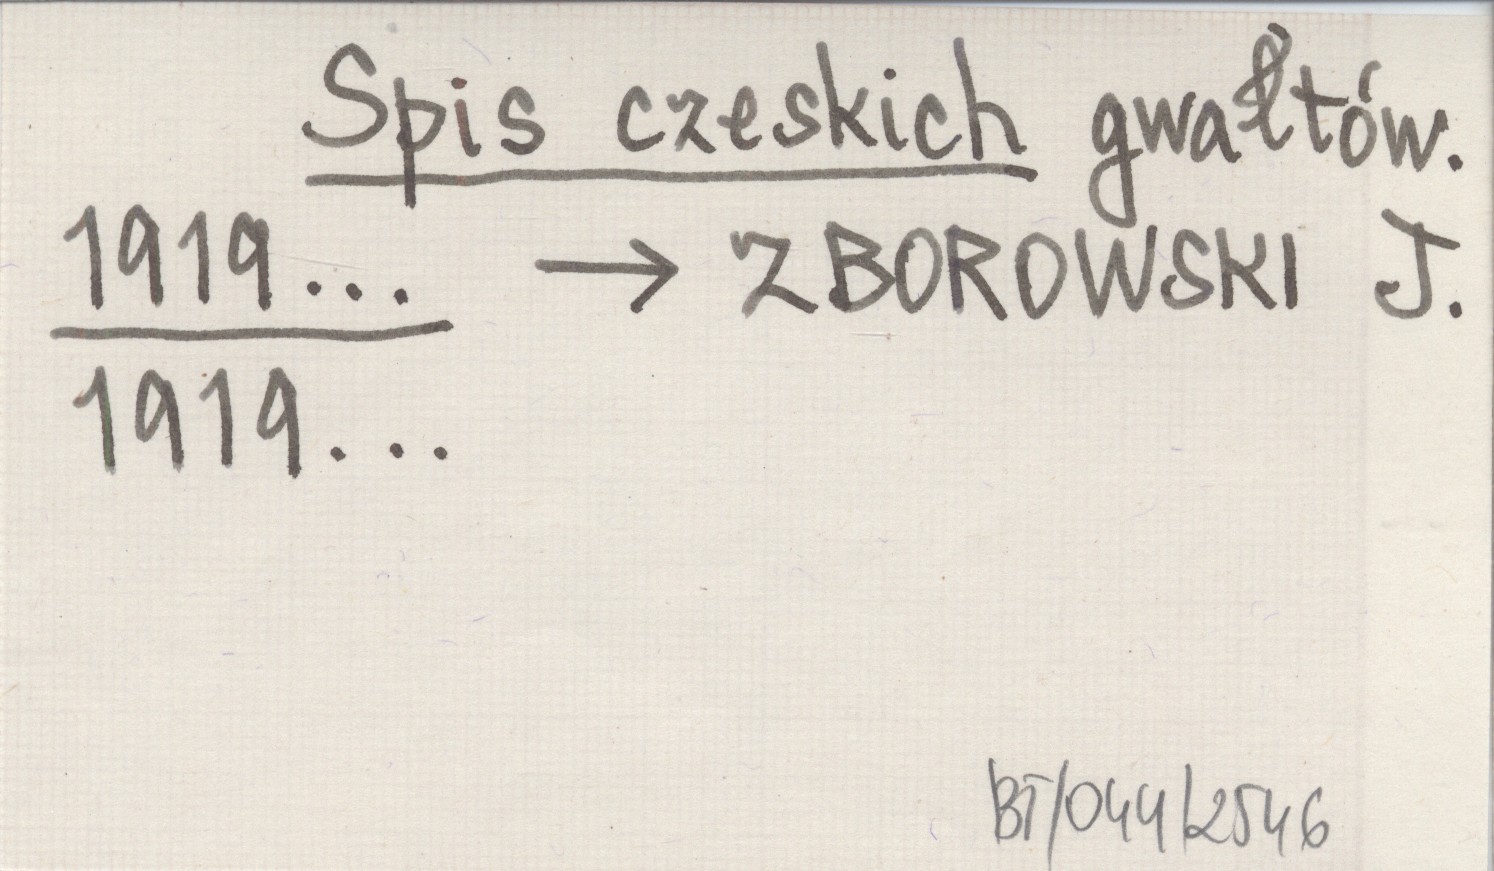 Spis czeskich gwałtów.
1919... → ZBOROWSKI J.
1919...
BT/044/2546